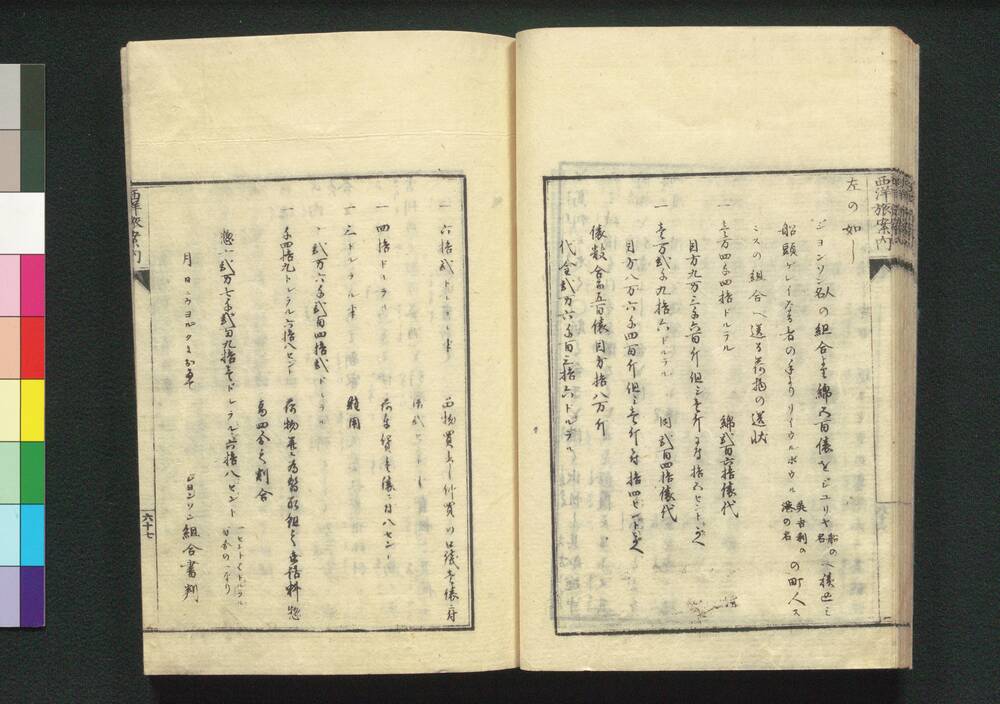 西洋旅案内
左の如し
ジョンソン名人の組合より綿五百俵をジユリヤ船の名へ積込ミ
船頭グレイなる者の手よりリイウルポウル英吉利の港の名の町人ス
ミスの組合へ送る荷物の送状
一 三万四千四拾ドルラル 綿弐百六拾俵代
目方九万三千六百斤但シ壱斤ニ付拾五セントづゝ
一 壱万弐千九拾六ドルラル 同弐百四拾俵代
目方八万六千四百斤但シ壱斤ニ付拾四セントづゝ
俵数合して五百俵目方拾八万斤
代金弐万六千百三拾六ドルラル
一 六拾弐ドル 品物買出し仲買の口銭壱俵ニ付
拾弐セント
一 四拾ドルラル 荷造賃壱俵ニ付八セント
一 三ドルラル 雑用
弐万六千弐百四拾弐ドルラル
千四拾九ドルラル六拾八セント 荷物為替取組之世話料惣
高四分之割合
惣〆弐万七千弐百九拾壱ドルラル六拾八セント 一セントハドルラル百分の一なり
月 日 ニウヨルクより ジョンソン組合書判
西洋旅案内
六十七